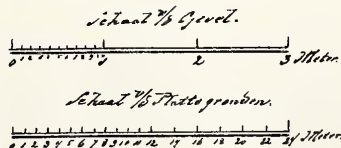 Schaal v/d Gevel.
0 1 2 3 4 5 6 7 8 9 10 1 2 3 Meter.
Schaal v/d Platte gronden.
0 1 2 3 4 5 6 7 8 9 10 11 12 14 16 18 20 22 24 Meter.